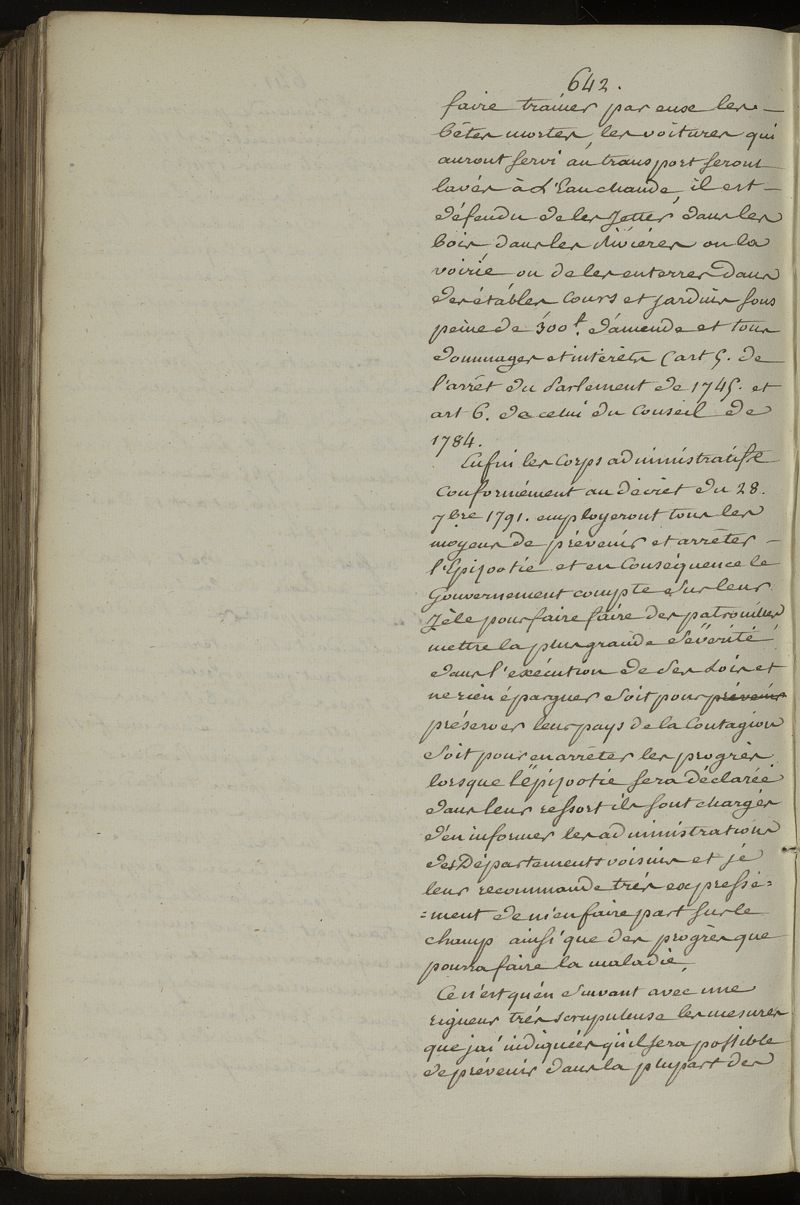 642.
faire trainer par eux les
bêtes mortes, les voitures qui
auront servi au transport seront
lavés à L'Eau chaude, il est
défendu de les Jetter dans les
bois dans les Riviéres ou la
voirie ou de les enterrer dans
des étables Cours et Jardins sous
peine de 300ᵗ. d'amende et tous
dommages et intérêts (art 5. de
l'arrêt du Parlement de 1745. et
art 6. de celui du Conseil de
1784.
Enfin les Corps administratifs
conformément au décret du 28.
7bre 1791. employeront tous les
moyens de prévenir et arrêter
l'Epizootie et en Conséquence le
Gouvernement compte sur leur
Zèle pour faire faire des patrouilles
mettre la plus grande Sévérité
dans l'exécution de Ses Loix et
ne rien épargner Soit pour prévenir
préserver leur pays de la Contagion
Soit pour en arrêter les progrès
lorsque l'épizootie sera déclarée
dans leur ressort ils sont chargés
d'en informer les administrations
des Départements voisins et je
leur recommande trés expressé=
=ment de m'en faire part sur le
champ ainsi que des progrès que
pourra faire la maladie,
Ce n'est qu'en Suivant avec une
rigueur très scrupuleuse les mesures
que jai indiquées qu'il sera possible
de prévenir dans la plupart des